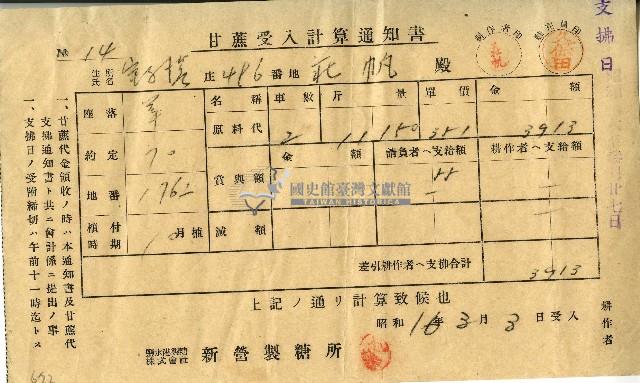 甘蔗受入計算通知書
№ 14
住所
氏名
庄 486 番地 莊 帆 殿
耕作者印
支拂日
座落
名稱 車數 斤量 單價 金額
原料代 2 11150 351 3913
約定 70
金額 請負者ヘ支給額 耕作者ヘ支給額
地番 1762
賞與額
植付時期 月植
減額
差引耕作者ヘ支拂合計 3913
上記ノ通リ計算致候也
昭和 16年 3月 3日受入
耕作者
鹽水港製糖株式會社 新營製糖所
一、甘蔗代金領收ノ時ハ本通知書及甘蔗代
支拂通知書ト共ニ會計係ニ提出ノ事
一、支拂日ノ受附締切ハ午前十一時迄トス
國史館臺灣文獻館
TAIWAN HISTORICA